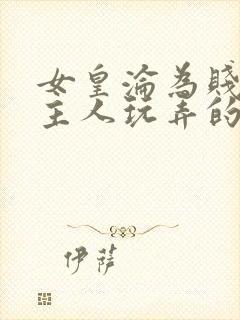 女皇淪為賤
主人玩弄的
伊薩